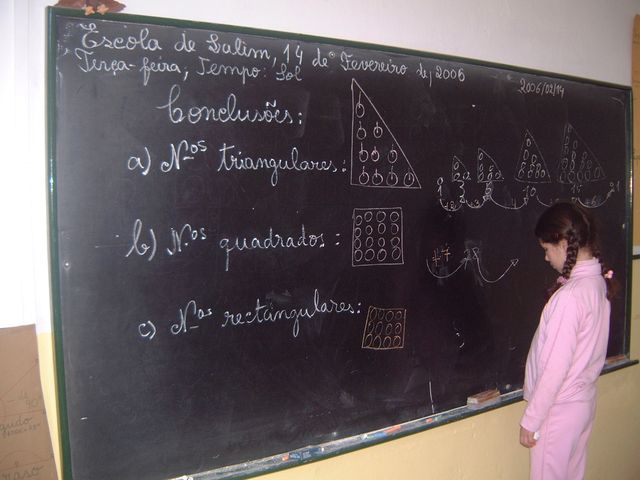 Escola de Salim, 14 de Fevereiro de, 2006
Terça-feira, Tempo: Sol
2006/02/14
Conclusões:
a) N.os triangulares:
1 3 10 15
b) N.os quadrados:
+7
c) N.os rectangulares: